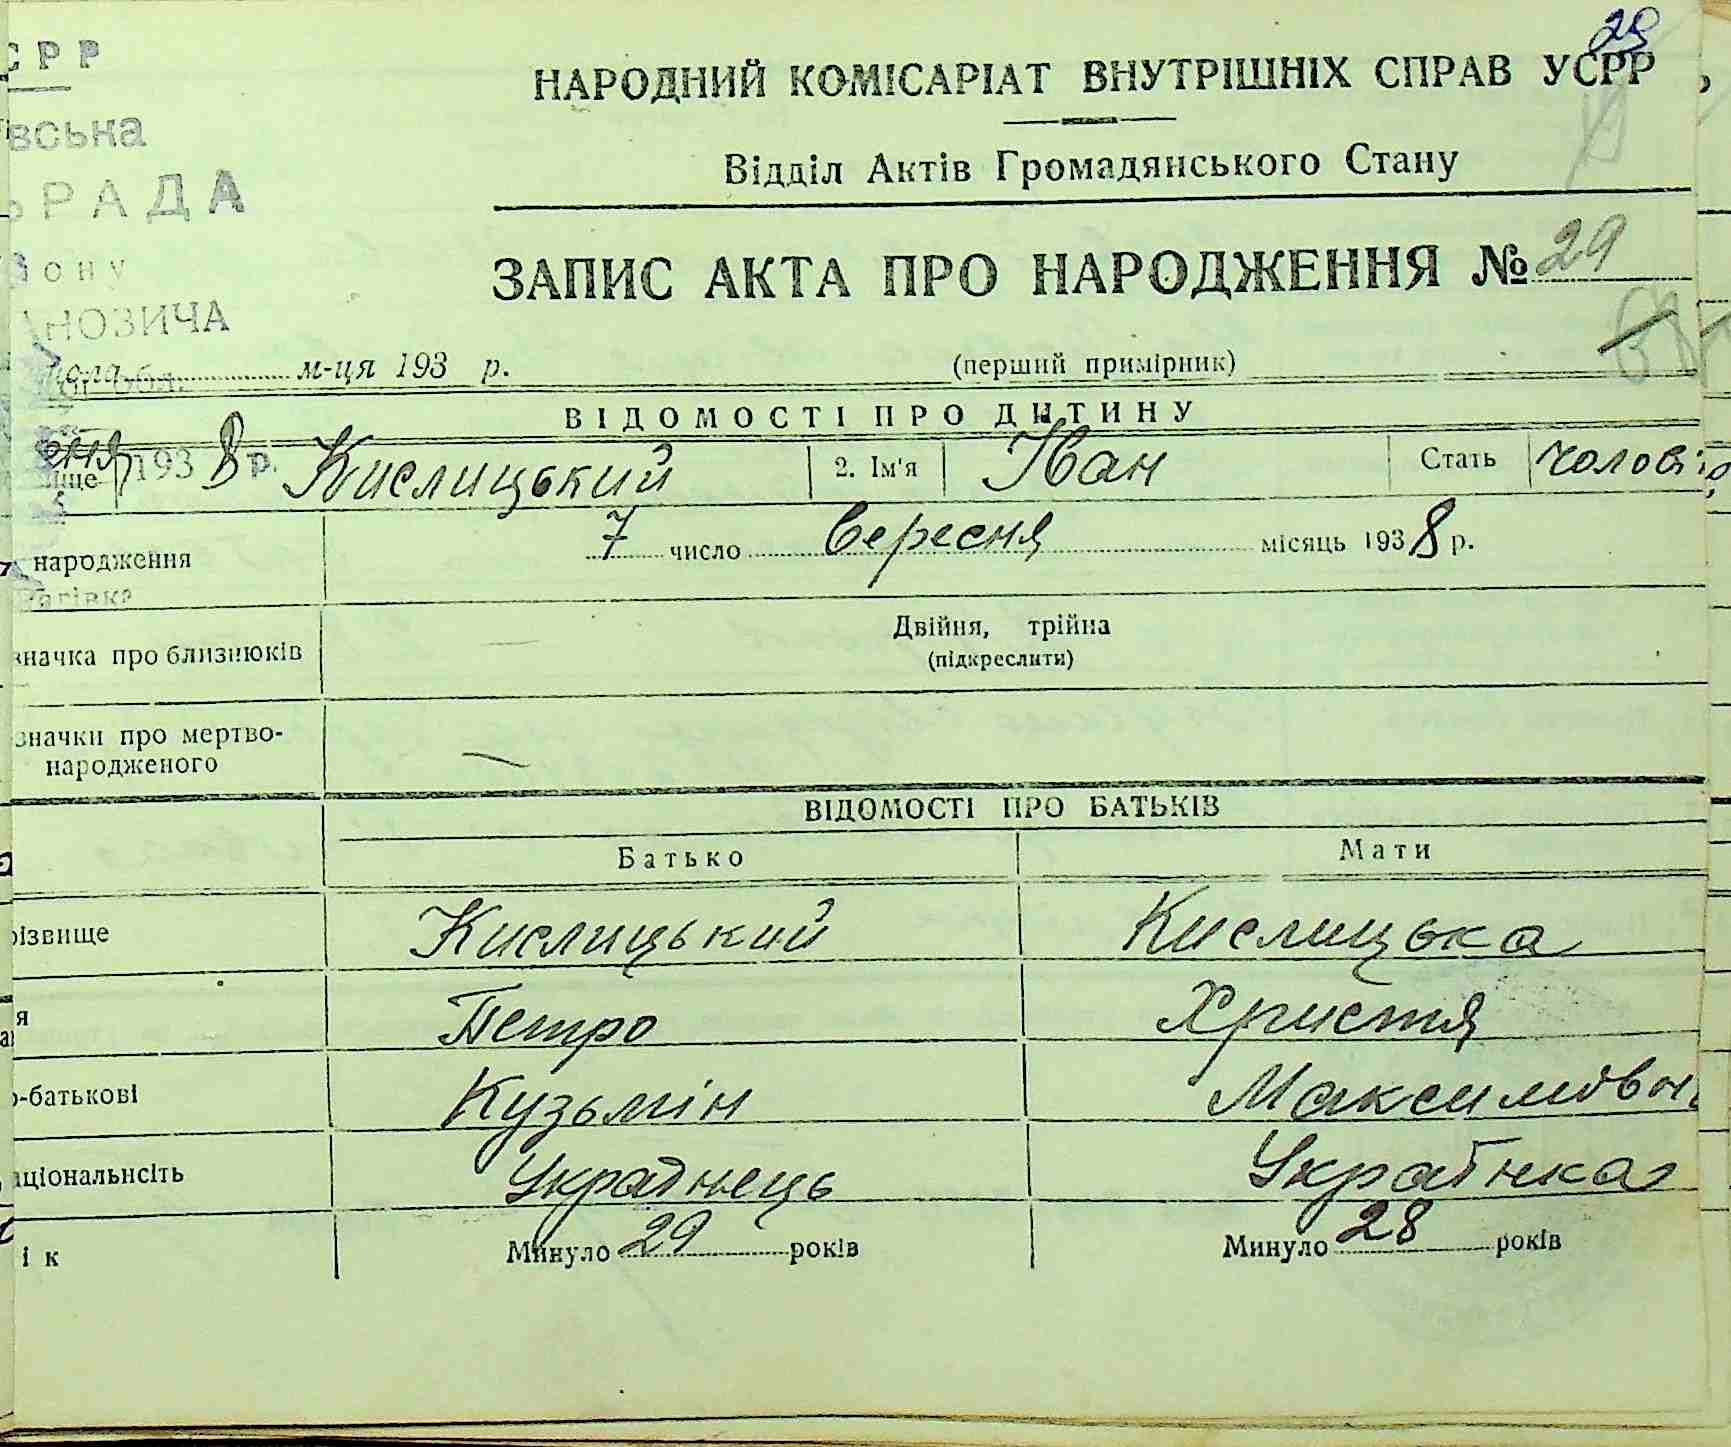 29
СРР
НАРОДНИЙ КОМІСАРІАТ ВНУТРІШНІХ СПРАВ УСРР
вська
Відділ Актів Громадянського Стану
РАДА
ЗАПИС АКТА ПРО НАРОДЖЕННЯ № 29
ону
АНОЗИЧА
м-ця 193 р. (перший примірник)
обл.
ВІДОМОСТІ ПРО ДИТИНУ
193 8 р.
ище Кислицький 2. Ім'я Іван Стать чолові
народження 7 число вересня місяць 1938 р.
значка про близнюків Двійня, трійна
(підкреслити)
значки про мертво-
народженого —
ВІДОМОСТІ ПРО БАТЬКІВ
Батько Мати
різвище Кислицький Кислицька
я Петро Христя
о-батькові Кузьмін Максимовн
аціональнсіть Українець Українка
і к Минуло 29 років Минуло 28 років